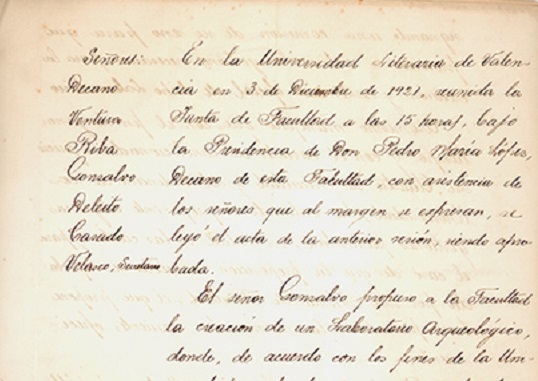 Señores:
Decano
Ventura
Riba
Gonsalvo
Deleito
Casado
Velasco, Secretario
En la Universidad Literaria de Valen-
cia en 3 de Diciembre de 1921, reunida la
Junta de Facultad a las 15 horas, bajo
la Presidencia de Don Pedro María López,
Decano de esta Facultad, con asistencia de
los señores que al margen se expresan, se
leyó el acta de la anterior sesión, siendo apro-
bada.
El señor Gonsalvo propuso a la Facultad
la creación de un Laboratorio Arqueológico,
donde, de acuerdo con los fines de la Um-